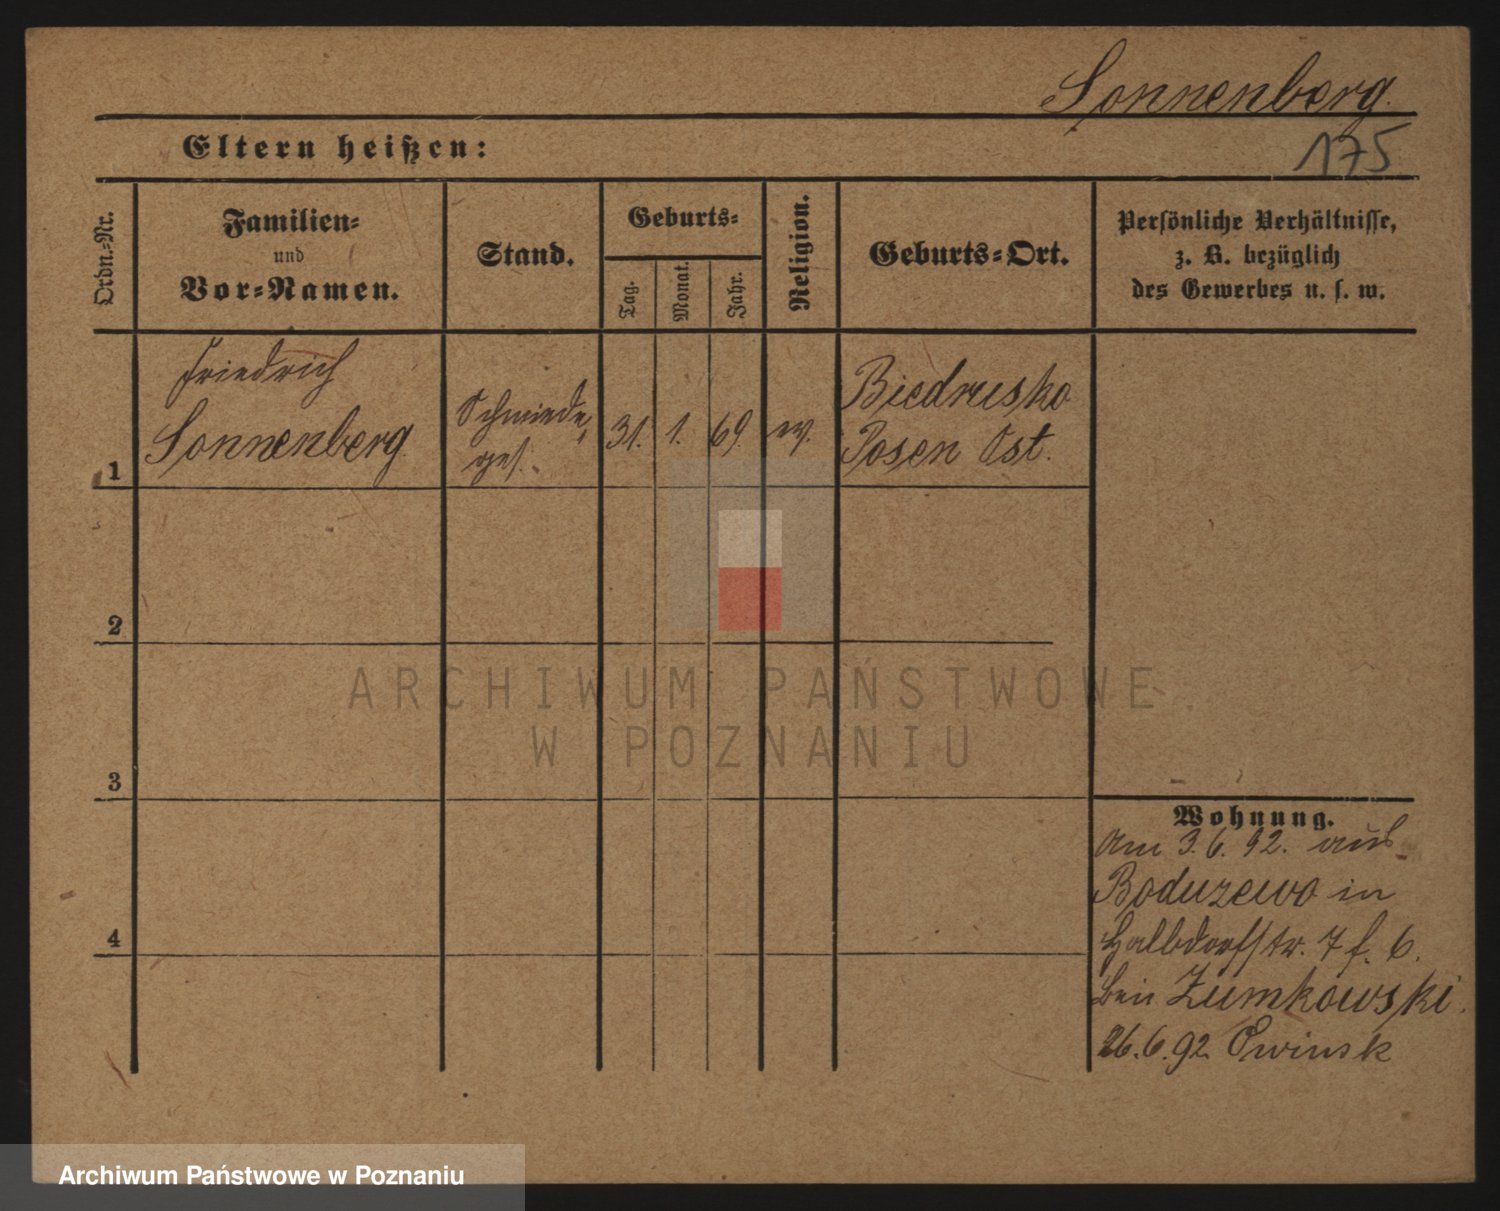 Sonnenberg.
Eltern heißen:
175
Ordn.-Nr.
Familien-
und
Vor-Namen.
Stand.
Geburts-
Tag.
Monat.
Jahr.
Religion.
Geburts-Ort.
Persönliche Verhältnisse,
z. B. bezüglich
des Gewerbes u. s. w.
1
Friedrich
Sonnenberg
Schmiede
ges.
31.
1.
69
ev.
Biedrusko
Posen Ost.
2
3
4
Wohnung.
Am 3.6.92. aus
Boduzewo in
Halbdorfstr. 7 f. 6.
bei Zumkowski.
26.6.92 Owinsk
ARCHIWUM PAŃSTWOWE
W POZNANIU
Archiwum Państwowe w Poznaniu